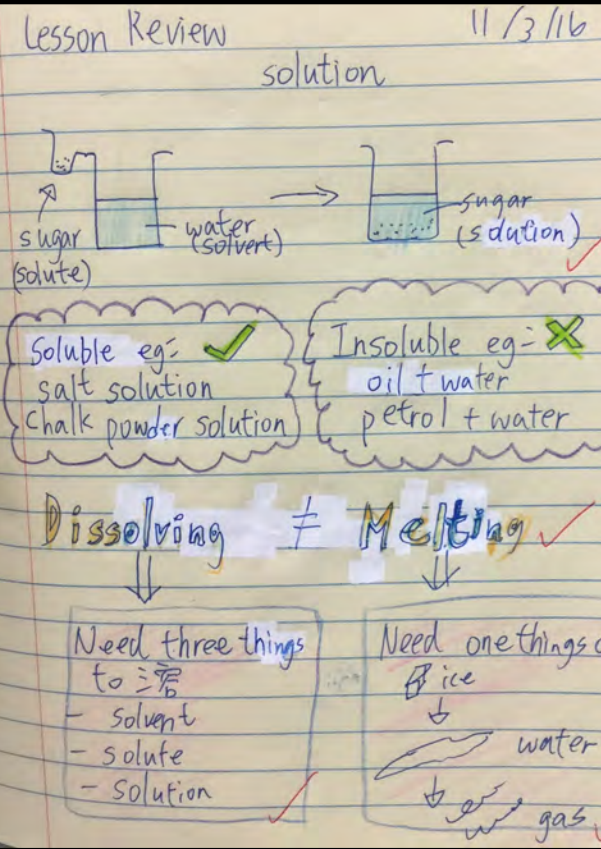 Lesson Review 11/3/16
solution
water
(solvert)
sugar
(solute)
sugar
(solution)
Soluble eg:
salt solution
Chalk powder solution
Insoluble eg:
oil + water
petrol + water
Dissolving ≠ Melting
Need three things
to
- Solvent
- solute
- Solution
Need one things
ice
water
gas